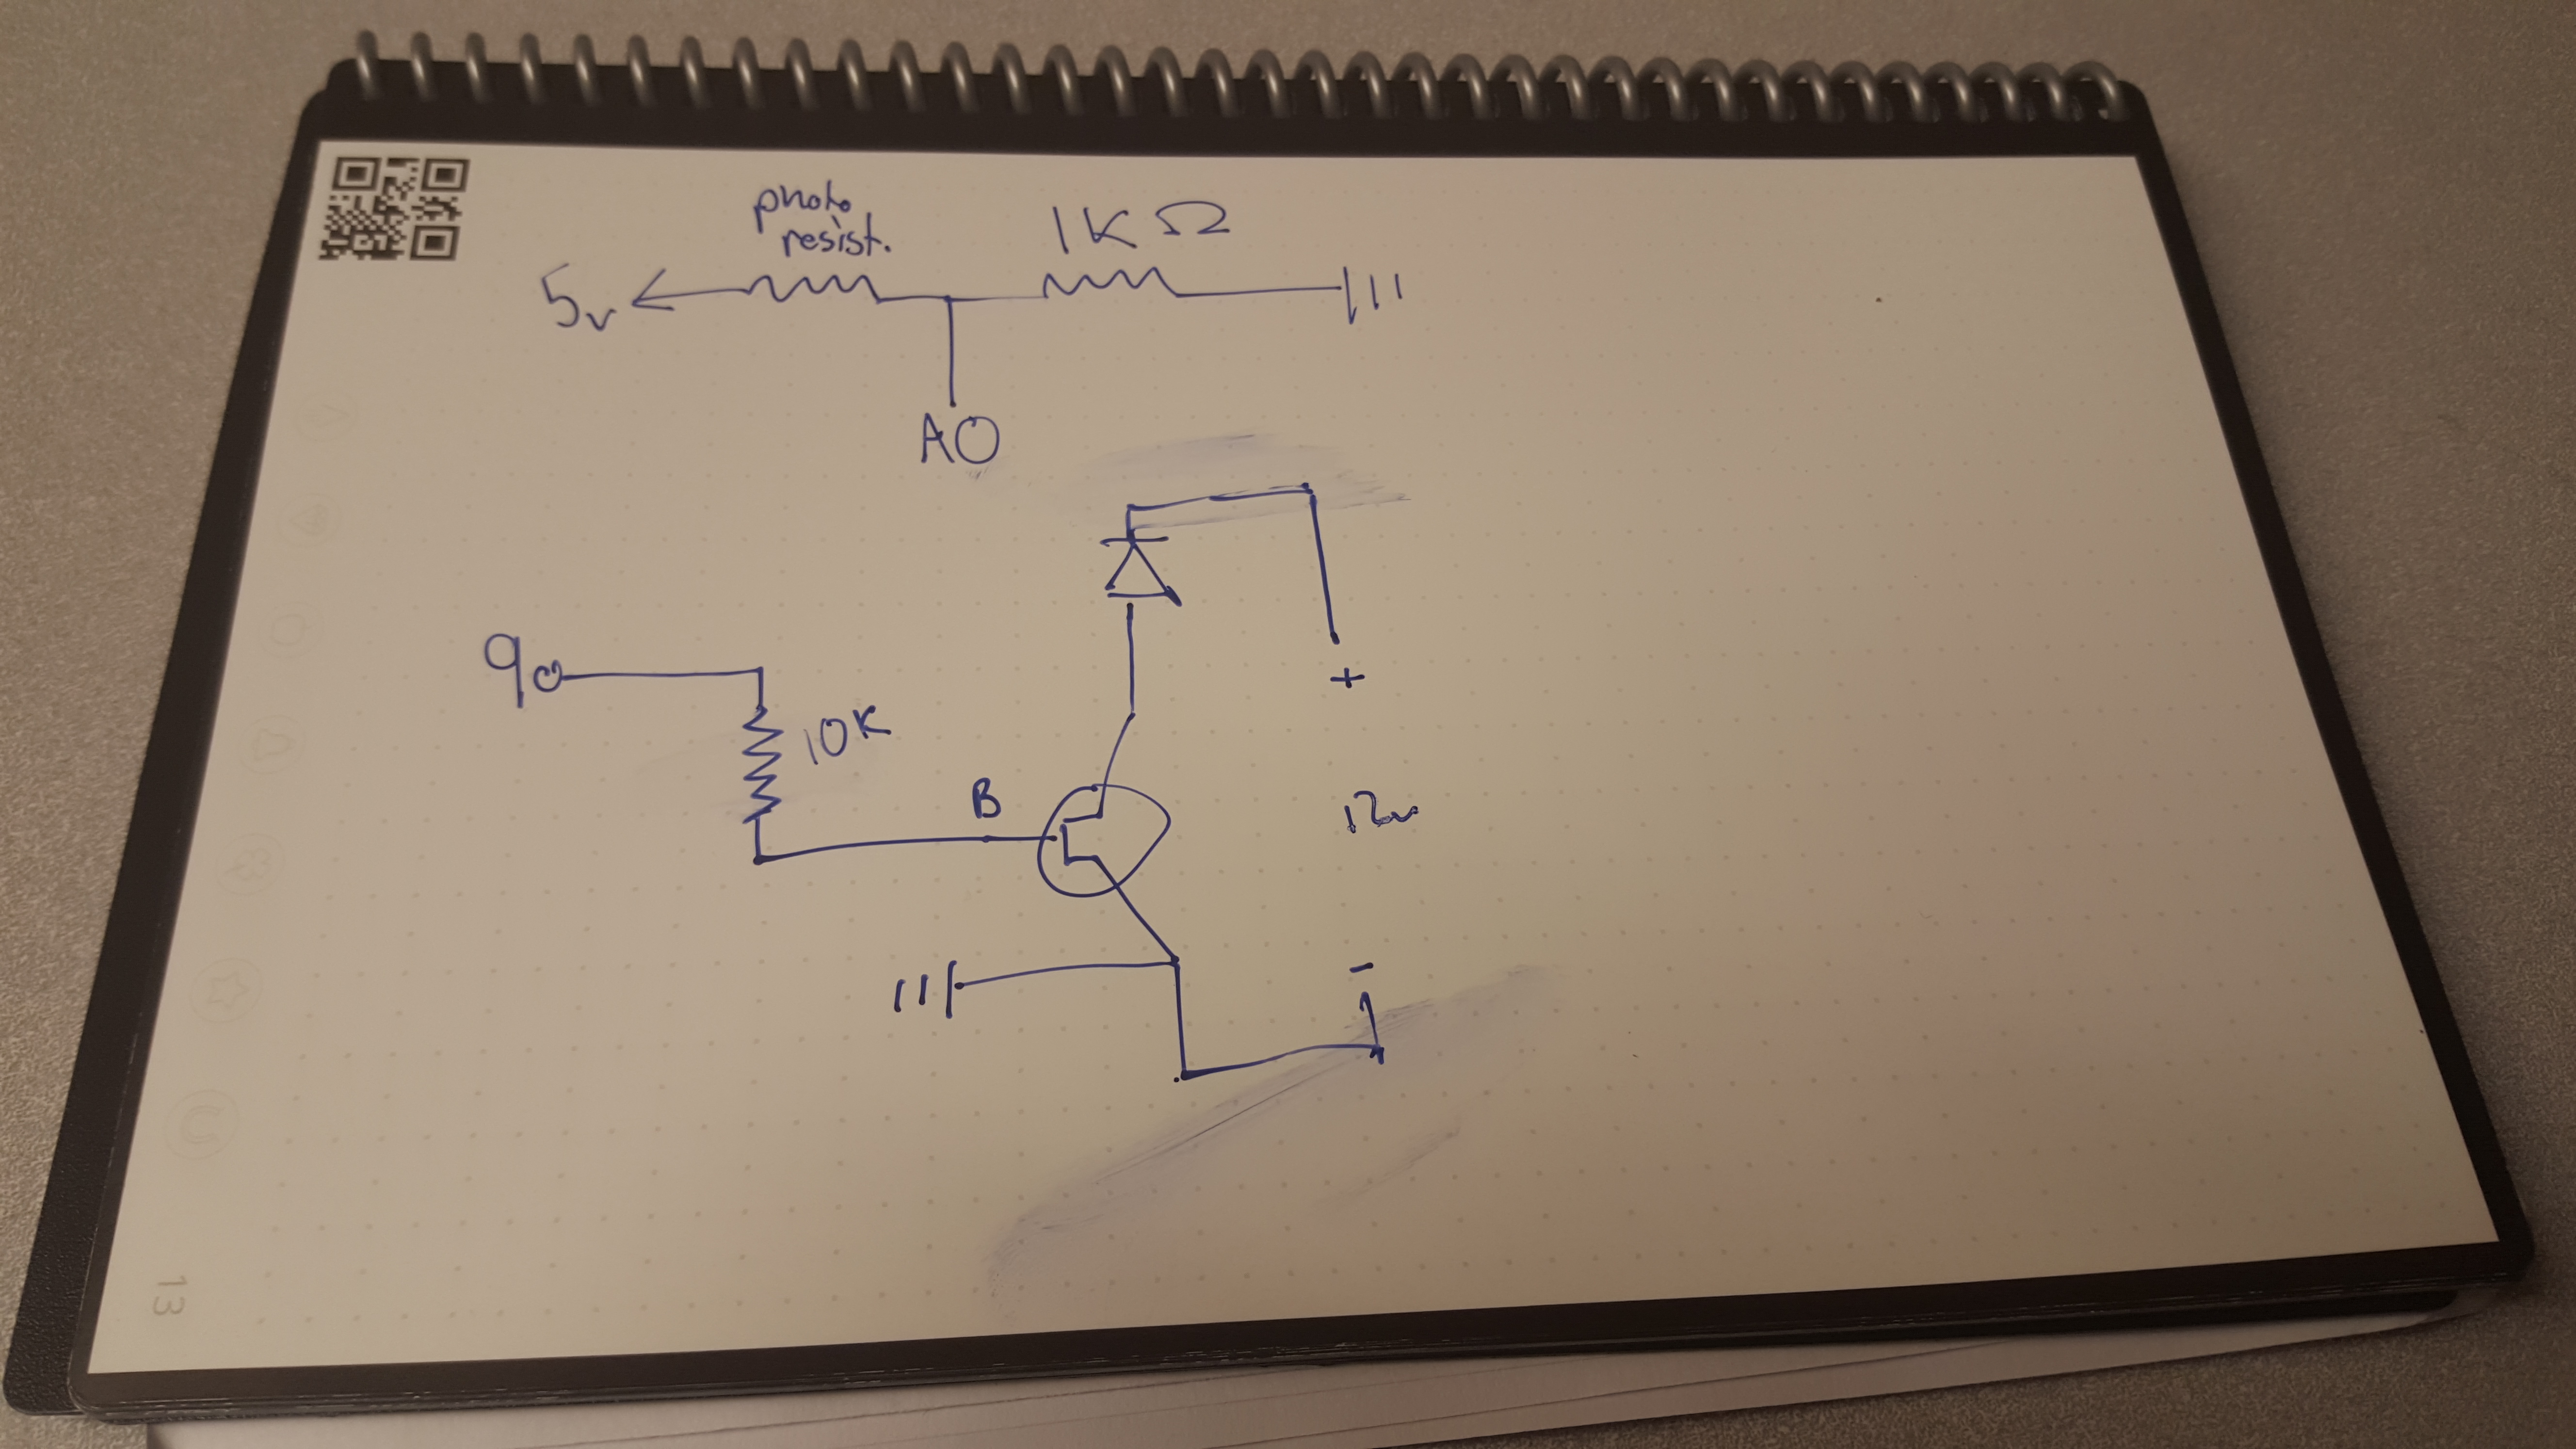 photo
resist.
1K Ω
5v
A0
+
9
10K
B
12v
-
13